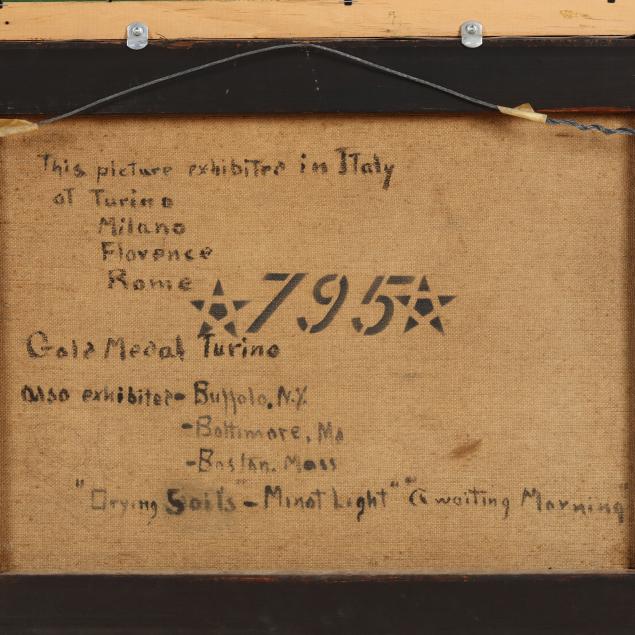 This picture exhibited in Italy
at Turino
Milano
Florence
Rome
★795★
Gold Medal Turino
also exhibited - Buffalo, N.Y.
- Baltimore, Md
- Boston, Mass
"Drying Sails" - Minot Light" "Awaiting Morning"